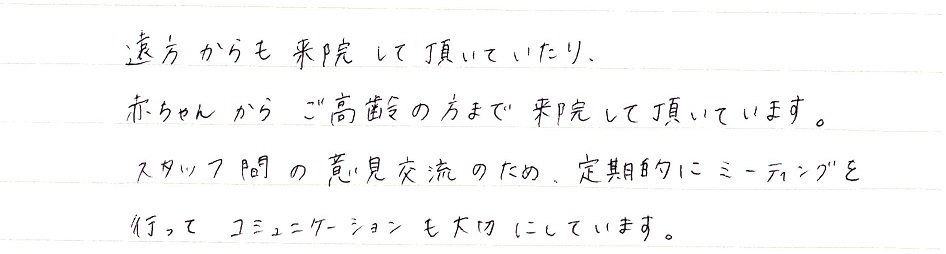 遠方からも来院して頂いていたり、
赤ちゃんからご高齢の方まで来院して頂いています。
スタッフ間の意見交流のため、定期的にミーティングを
行ってコミュニケーションも大切にしています。